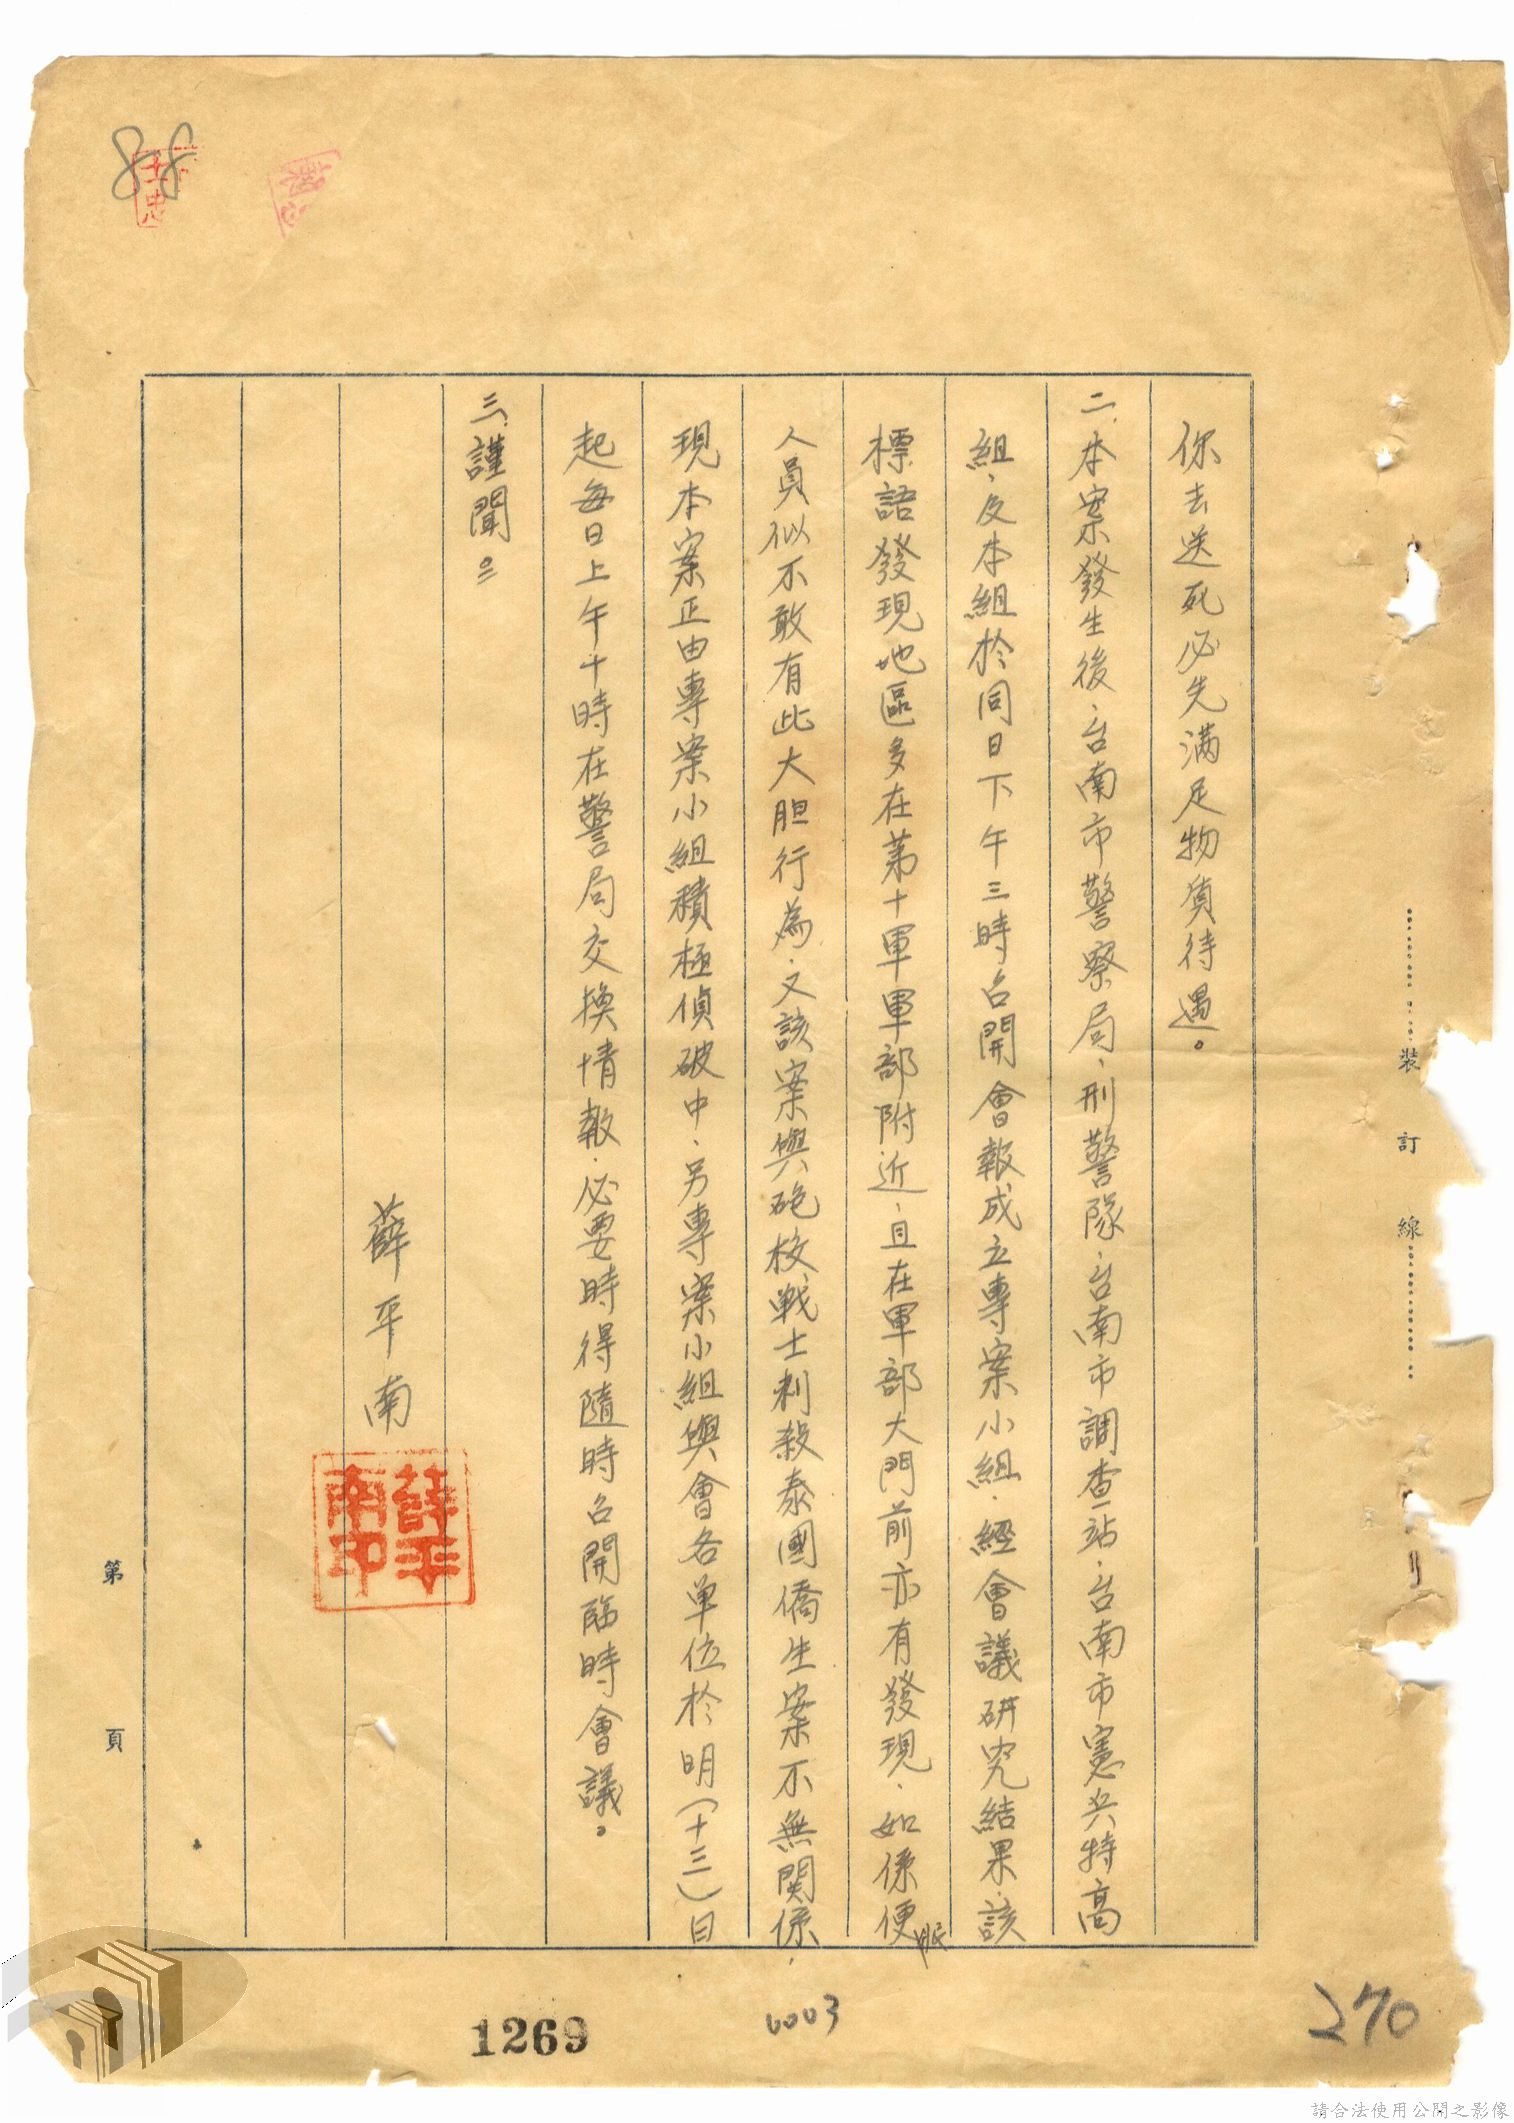 88
你去送死必先滿足物質待遇。
二、本案發生後、台南市警察局、刑警隊、台南市調查站、台南市憲兵特高
組、及本組於同日下午三時召開會報成立專案小組、經會議研究結果、該
標語發現地區多在第十軍軍部附近、且在軍部大門前亦有發現、如係便
服
人員似不敢有此大胆行為、又該案與砲校戰士刺殺泰國僑生案不無関係、
現本案正由專案小組積極偵破中、另專案小組與會各單位於明(十三)日
起每日上午十時在警局交換情報、必要時得隨時召開臨時會議。
三、謹聞。
薛平南
薛平南印
裝訂線
第 頁
1269
0003
270
請合法使用公開之影像